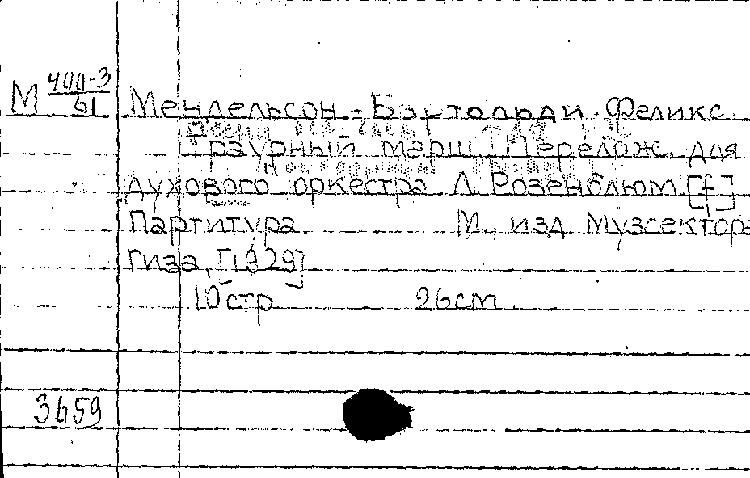 М 400-3/61
Мендельсон-Бартольди Феликс.
Траурный марш. Перелож. для
духового оркестра Л. Розенблюм. [f]
Партитура М., изд. Музсектора
Гиза, [1929]
10 стр. 26 см.
3659